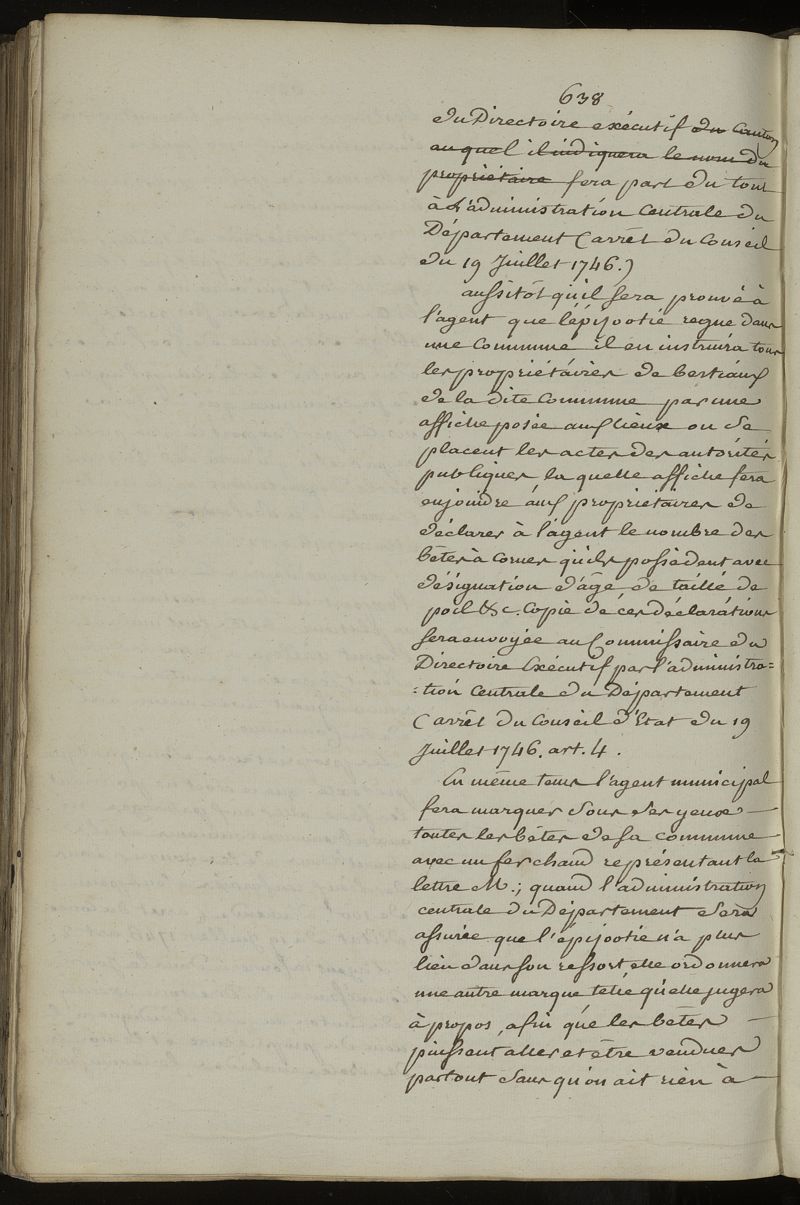 638
du Directoire exécutif du Canton
auquel il indiquera le nom du
propriétaire fera part du tout
à l'administration Centrale du
Département (arrêt du Conseil
du 19 Juillet 1746.)
aussitôt qu'il sera prouvé à
l'agent que l'épijootie regne dans
une Commune il en instruira tous
les propriétaires de bestiaux
de la dite Commune par une
affiche posée aux lieux ou se
placent les actes des autorités
publiques la quelle affiche fera
enjoindre aux propriétaires de
déclarer à l'agent le nombre des
bêtes à Cornes qu'ils possèdent avec
désignation d'âge, de taille de
poil &c. Copie de ces déclarations
sera envoyée au Commissaire du
Directoire Exécutif par l'administra=
=tion Centrale du Département
(arrêt du Conseil d'Etat du 19
Juillet 1746. art. 4.
En même tems l'agent municipal
fera marquer sous ses yeux
toutes les bêtes de sa commune
avec un fer chaud représentant la
lettre M.; quand l'administration
centrale du Département sera
assurée que l'épijootie n'a plus
lieu dans son ressort elle ordonnera
une autre marque telle qu'elle jugera
à propos, afin que les bêtes
puissent aller et être vendues
partout sans qu'on ait rien à